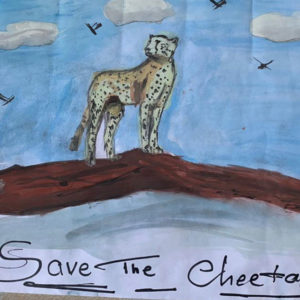 Save The Cheeta